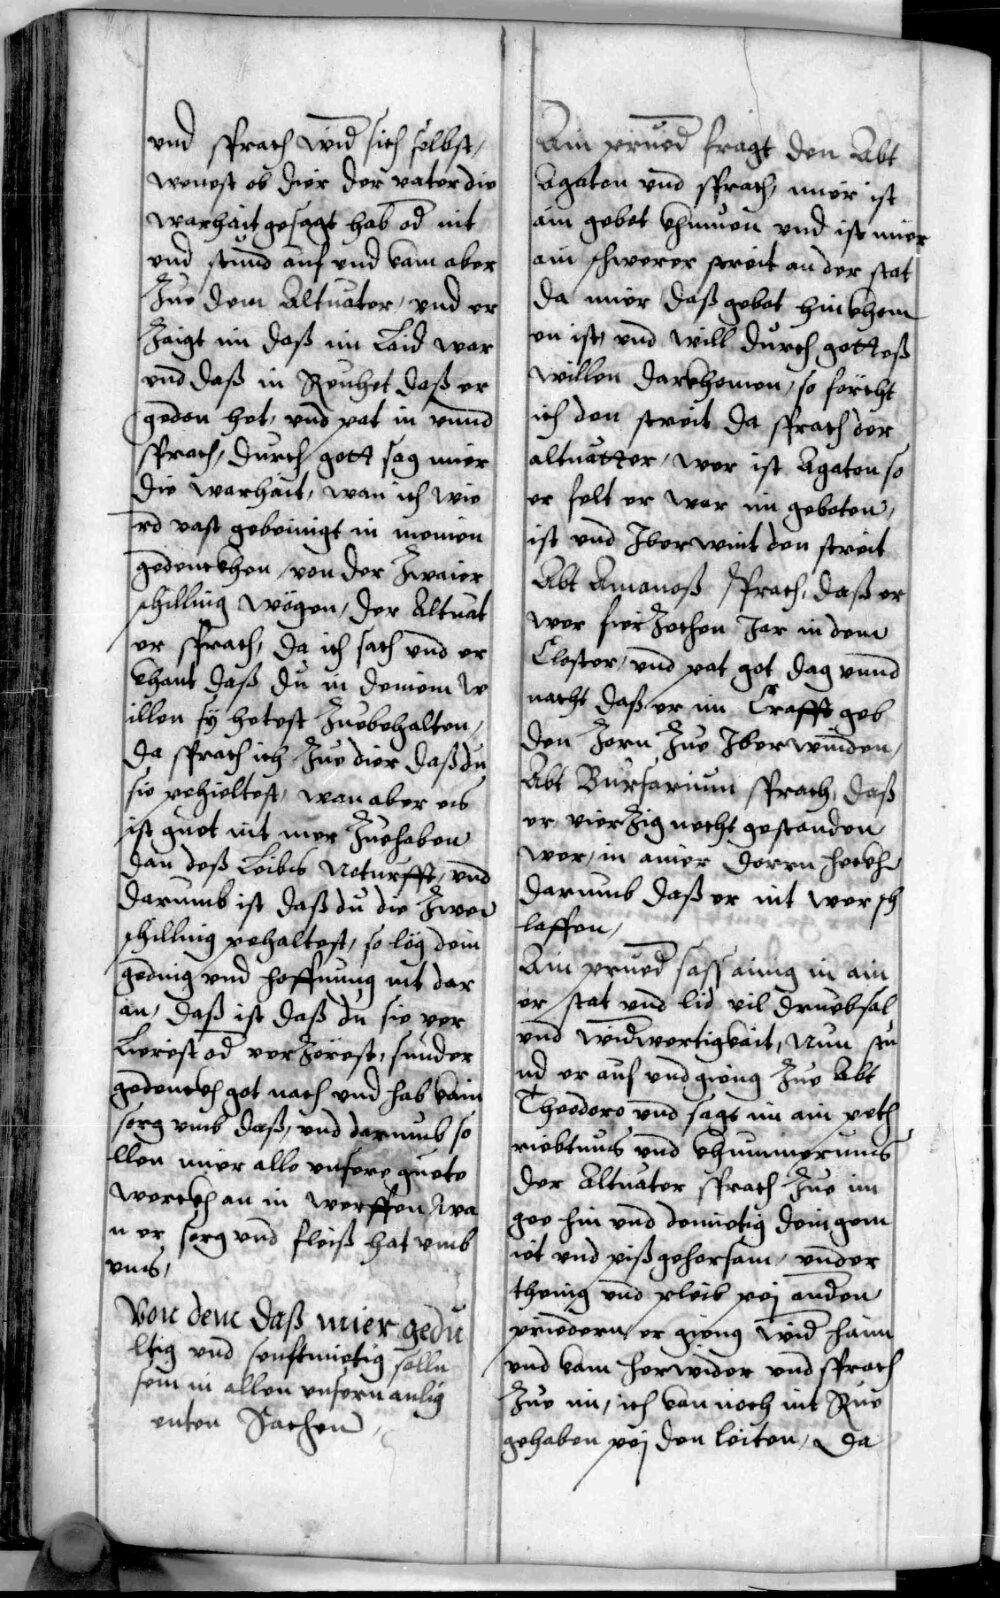 vnd sprach wid sich selbst,
wenest ob dier der vater die
warhait gesagt hab od nit
vnd stund auf vnd kam aber
Zue dem Altuater, vnd er
Zaigt im daß im Laid war
vnd daß in Reuhet daß er
gedon het, vnd pat in vnnd
sprach, durch gott sag mier
die warhait, wan ich wie
rd vast gebeinigt in meinen
gedenckhen, von der Zwaier
schilling wegen, der Altuat
er sprach, da ich sach vnd er
khant daß du in deinem w
illen sy hetest Zuebehalten,
da sprach ich Zue dier daß du
sie pehieltest, wan aber es
ist guet nit mer Zuehaben
dan deß Leibs Noturfft, vnd
darumb ist daß du die Zwen
schilling pehaltest, so leg dein
geding vnd hoffnung nit dar
an, daß ist daß du sie ver
Lierest od verZerest, sunder
gedenckh got nach vnd hab kain
sorg vmb daß, vnd darumb so
llen mier alle vnsere guete
werckh an in werffen, wa
n er sorg vnd fleiß hat vmb
vns,
Von dem daß mier gedu
ltig vnd senftmietig solln
sein in allen vnsern anlig
enten Sachen,
Ain prued fragt den Abt
Agaton vnd sprach, mier ist
ain gebot khumen vnd ist mier
ain schwerer streit an der stat
da mier daß gebot hin khem
en ist, vnd will durch gotteß
willen darkhomen, so fercht
ich den streit da sprach der
altuatter, wer ist Agaton so
er felt er war im geboten,
ist vnd Iberwint den streit
Abt Amonoß sprach, daß er
wer fierZechen Jar in dem
Closter, vnd pat got dag vnnd
nacht daß er im Crafft geb
den Zorn Zue Iberwinden,
Abt Bursarium sprach, daß
er vierZig necht gestanden
wer, in ainer dorrn heckh
darumb daß er nit wer sch
laffen,
Ain prued saß ainig in ain
er stat vnd lid vil druebsal
vnd widwertigkait, Nun stu
nd er auf vnd gieng Zue Abt
Theodoro vnd sagt im ain peth
riebtnus vnd khummernus
der Altuater sprach Zue im
gee hin vnd demietig dein gem
iet vnd piß gehorsam, vnder
thenig vnd pleib pej anden
priedern, er gieng wid haim
vnd kam herwider vnd sprach
Zue im, ich kan noch nit Rue
gehaben pej den leiten, Da